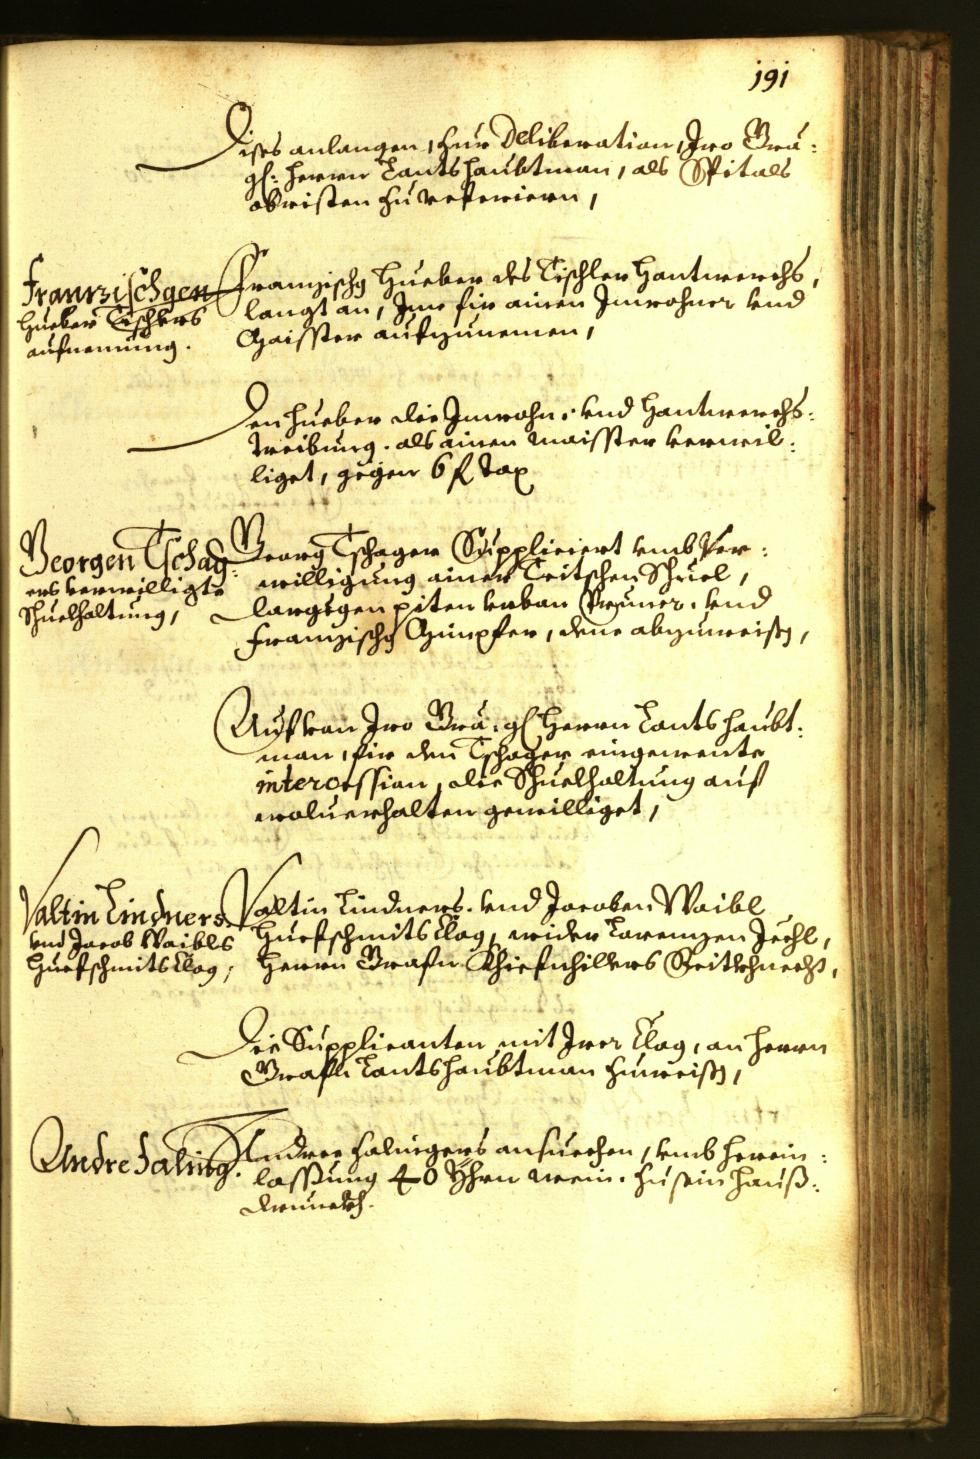 191
Dises anlangen, zur Deliberation, Iro Gra:
gl: herrn Landtshaubtman, als Spitals
obristen zu referiern,
Franzischgen
Hueber Tischlers
aufnemung.
Franzischg Hueber des Tischler Hantwerchs,
langt an, Ime für ainen Inwohner vnd
Maister aufzunemen,
Den Hueber die Inwohn: vnd Hantwerchs:
treibung. als ainen maister verwil:
liget, gegen 6 fl Tax
Georgen Tschag:
ers verwilligte
Schuelhaltung,
Georg Tschager Suppliciert vmb Ver:
willigung ainer Teitschen Schuel,
dargegen piten Vrban Pruner. vnd
Franzischg Gumpfer, dene abzuweisen,
Auf von Iro Gra: gl herrn Landtshaubt:
man, für den Tschager eingewente
intercession, die Schuelhaltung auf
wolverhalten gewilliget,
Valtin Lindners
vnd Jacob Waibls
Huefschmits Clag,
Valtin Lindners. vnd Jacoben Waibl
Huefschmits Clag, wider Lorenzen Jechl,
herrn Grafn Khiefnhillers Reitkhnecht,
Die Supplicanten mit Irer Clag, an herrn
Grafn Landtshaubtman zuweisen,
Andre Salurg.
Andree Salurgers ansuechen, vmb herein:
lassung 40 Yhrn wein. zu sein Hauß:
drunckh.